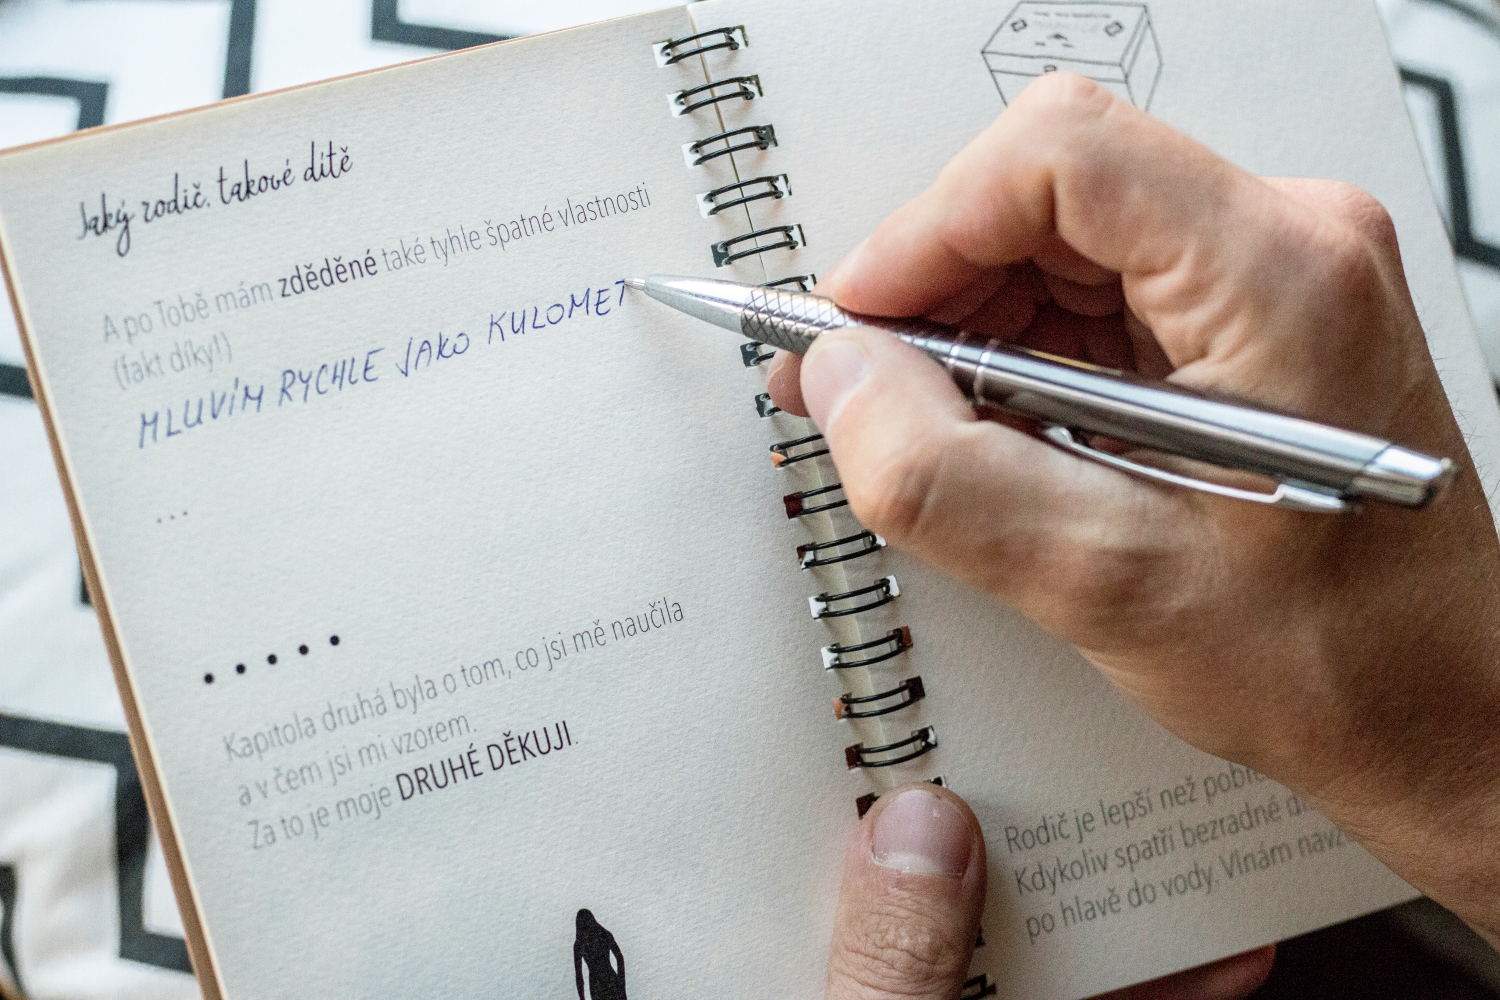 Jaký rodič, takové dítě
A po Tobě mám zděděné také tyhle špatné vlastnosti
(fakt díky!)
MLUVÍM RYCHLE JAKO KULOMET
...
• • • • •
Kapitola druhá byla o tom, co jsi mě naučila
a v čem jsi mi vzorem.
Za to je moje DRUHÉ DĚKUJI.
Rodič je lepší než
Kdykoliv spatří bezradné
po hlavě do vody. Vlnám